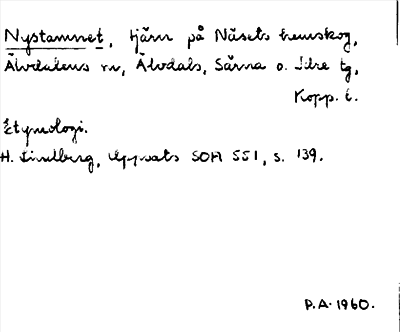 Nystamnet, tjärn på Näsets hemskog,
Älvdalens sn, Älvdals, Särna o. Idre tg,
Kopp. l.
Etymologi.
H. Lindberg, Uppsats SOH 551, s. 139.
P.A. 1960.